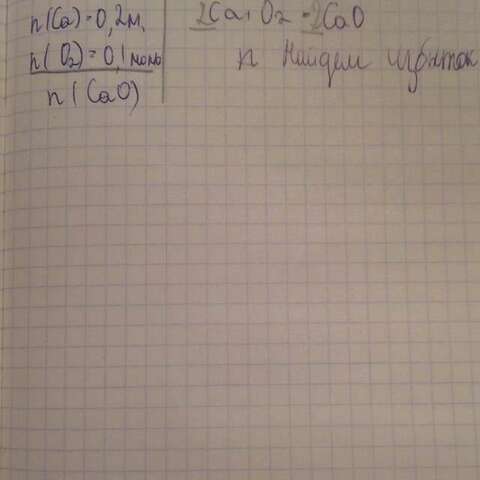 n(Ca)=0,2м.
n(O₂)=0,1 моль
n(CaO)
2Ca+O₂=2CaO
n Найдем избыток